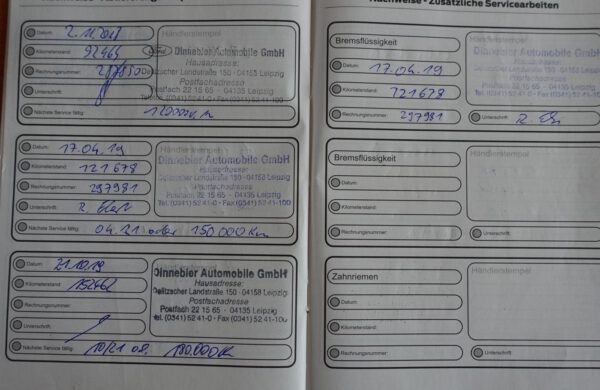 Nachweise - Zusätzliche Servicearbeiten
Datum:
Kilometerstand:
Rechnungsnummer:
Unterschrift:
Nächste Service fällig:
120000 km
Händlerstempel
Dinnebier Automobile GmbH
Hausadresse:
Delitzscher Landstraße 150 · 04158 Leipzig
Postfachadresse
Postfach 22 15 65 - 04135 Leipzig
Telefon (0341) 52 41-0 · Fax (0341) 52 41-100
Datum: 17.04.19
Kilometerstand: 121678
Rechnungsnummer: 297981
Unterschrift:
Nächste Service fällig: 04.21 oder 150.000 Km
Händlerstempel
Dinnebier Automobile GmbH
Hausadresse:
Delitzscher Landstraße 150 · 04158 Leipzig
Postfachadresse
Postfach 22 15 65 - 04135 Leipzig
Tel. (0341) 52 41-0 · Fax (0341) 52 41-100
Datum: 21.10.19
Kilometerstand: 152462
Rechnungsnummer:
Unterschrift:
Nächste Service fällig: 10/21 od. 180.000 Km
Dinnebier Automobile GmbH
Hausadresse:
Delitzscher Landstraße 150 · 04158 Leipzig
Postfachadresse
Postfach 22 15 65 - 04135 Leipzig
Tel. (0341) 52 41-0 - Fax (0341) 52 41-100
Bremsflüssigkeit
Datum: 17.04.19
Kilometerstand: 121678
Rechnungsnummer: 297981
Händlerstempel
Dinnebier Automobile GmbH
Hausadresse:
Delitzscher Landstraße 150 · 04158 Leipzig
Postfachadresse
Postfach 22 15 65 - 04135 Leipzig
Tel. (0341) 52 41-0 · Fax (0341) 52 41-100
Unterschrift:
Bremsflüssigkeit
Datum:
Kilometerstand:
Rechnungsnummer:
Händlerstempel
Unterschrift:
Zahnriemen
Datum:
Kilometerstand:
Rechnungsnummer:
Händlerstempel
Unterschrift: